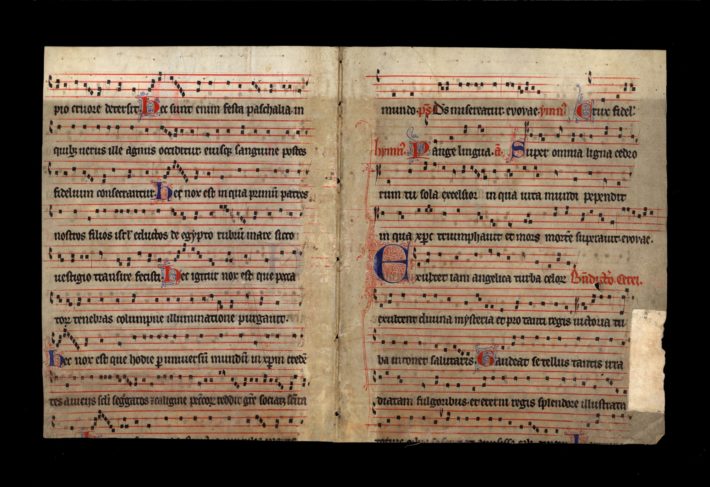 pio cruore detersit Hec sunt enim festa paschalia in
quib; uerus ille agnus occiditur eiusq; sanguine postes
fidelium consecrantur Hec nox est in qua primū patres
nostros filios isrl eductos de egypto rubrū mare sicco
uestigio transire fecisti Hec igitur nox est que pecca
tor tenebras columpne illuminatione purgauit.
Hec nox est que hodie p uniuersū mundū in xpm crede
tes a uiciis scli
mundo. ps Ds misereatur evovae. ymn Crux fidel
hymn Pange lingua. Super omnia ligna cedro
rum tu sola excelsior in qua uita mundi pependit
in qua xpc triumphauit et mors mortē superauit evovae.
Exultet iam angelica turba celor Bndictō Cerei.
exultent diuina mysteria et pro tanti regis uictoria tu
ba intonet salutaris Gaudeat se tellus tantis irra
diatam fulgoribus et eterni regis splendore illustrata